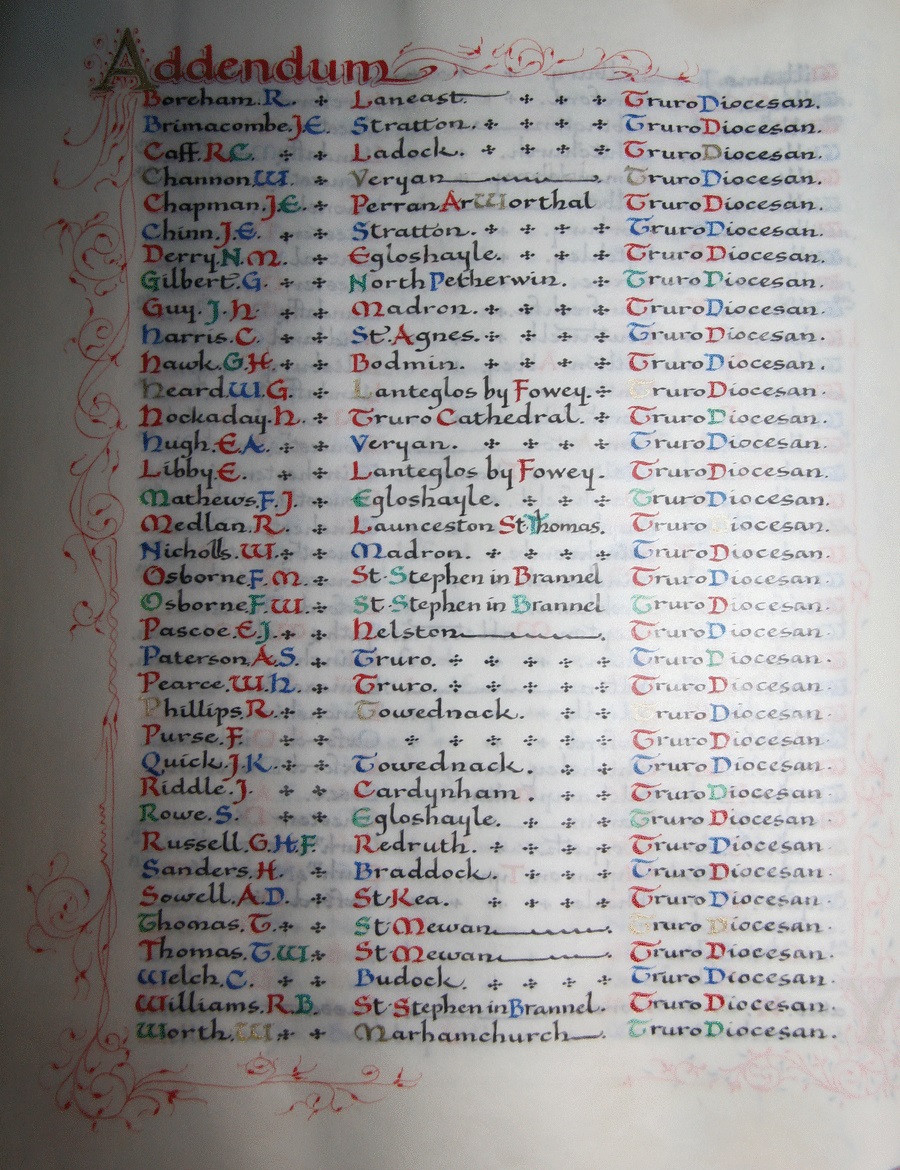 Addendum
Boreham. R. Laneast. Truro Diocesan.
Brimacombe. J.E. Stratton. Truro Diocesan.
Caff. R.C. Ladock. Truro Diocesan.
Channon W. Veryan Truro Diocesan.
Chapman. J.E. Perran Ar Worthal Truro Diocesan.
Chinn. J.E. Stratton. Truro Diocesan.
Derry. N.M. Egloshayle. Truro Diocesan.
Gilbert. G. North Petherwin. Truro Diocesan.
Guy. J.H. Madron. Truro Diocesan.
Harris. C. St. Agnes. Truro Diocesan.
Hawk. G.H. Bodmin. Truro Diocesan.
Heard W.G. Lanteglos by Fowey. Truro Diocesan.
Hockaday. H. Truro Cathedral. Truro Diocesan.
Hugh. E.A. Veryan. Truro Diocesan.
Libby E. Lanteglos by Fowey. Truro Diocesan.
Mathews. F.J. Egloshayle. Truro Diocesan.
Medlan. R. Launceston St Thomas. Truro Diocesan.
Nicholls. W. Madron. Truro Diocesan.
Osborne F.M. St. Stephen in Brannel Truro Diocesan.
Osborne F.W. St. Stephen in Brannel Truro Diocesan.
Pascoe. E.J. Helston. Truro Diocesan.
Paterson. A.S. Truro. Truro Diocesan.
Pearce. W.H. Truro. Truro Diocesan.
Phillips. R. Towednack. Truro Diocesan.
Purse. F. Truro Diocesan.
Quick. J.K. Towednack. Truro Diocesan.
Riddle. J. Cardynham. Truro Diocesan.
Rowe. S. Egloshayle. Truro Diocesan.
Russell. G.H.F. Redruth. Truro Diocesan.
Sanders. H. Braddock. Truro Diocesan.
Sowell. A.D. St Kea. Truro Diocesan.
Thomas. T. St Mewan Truro Diocesan.
Thomas. T.W. St Mewan Truro Diocesan.
Welch. C. Budock. Truro Diocesan.
Williams. R.B. St. Stephen in Brannel. Truro Diocesan.
Worth. W. Marhamchurch Truro Diocesan.